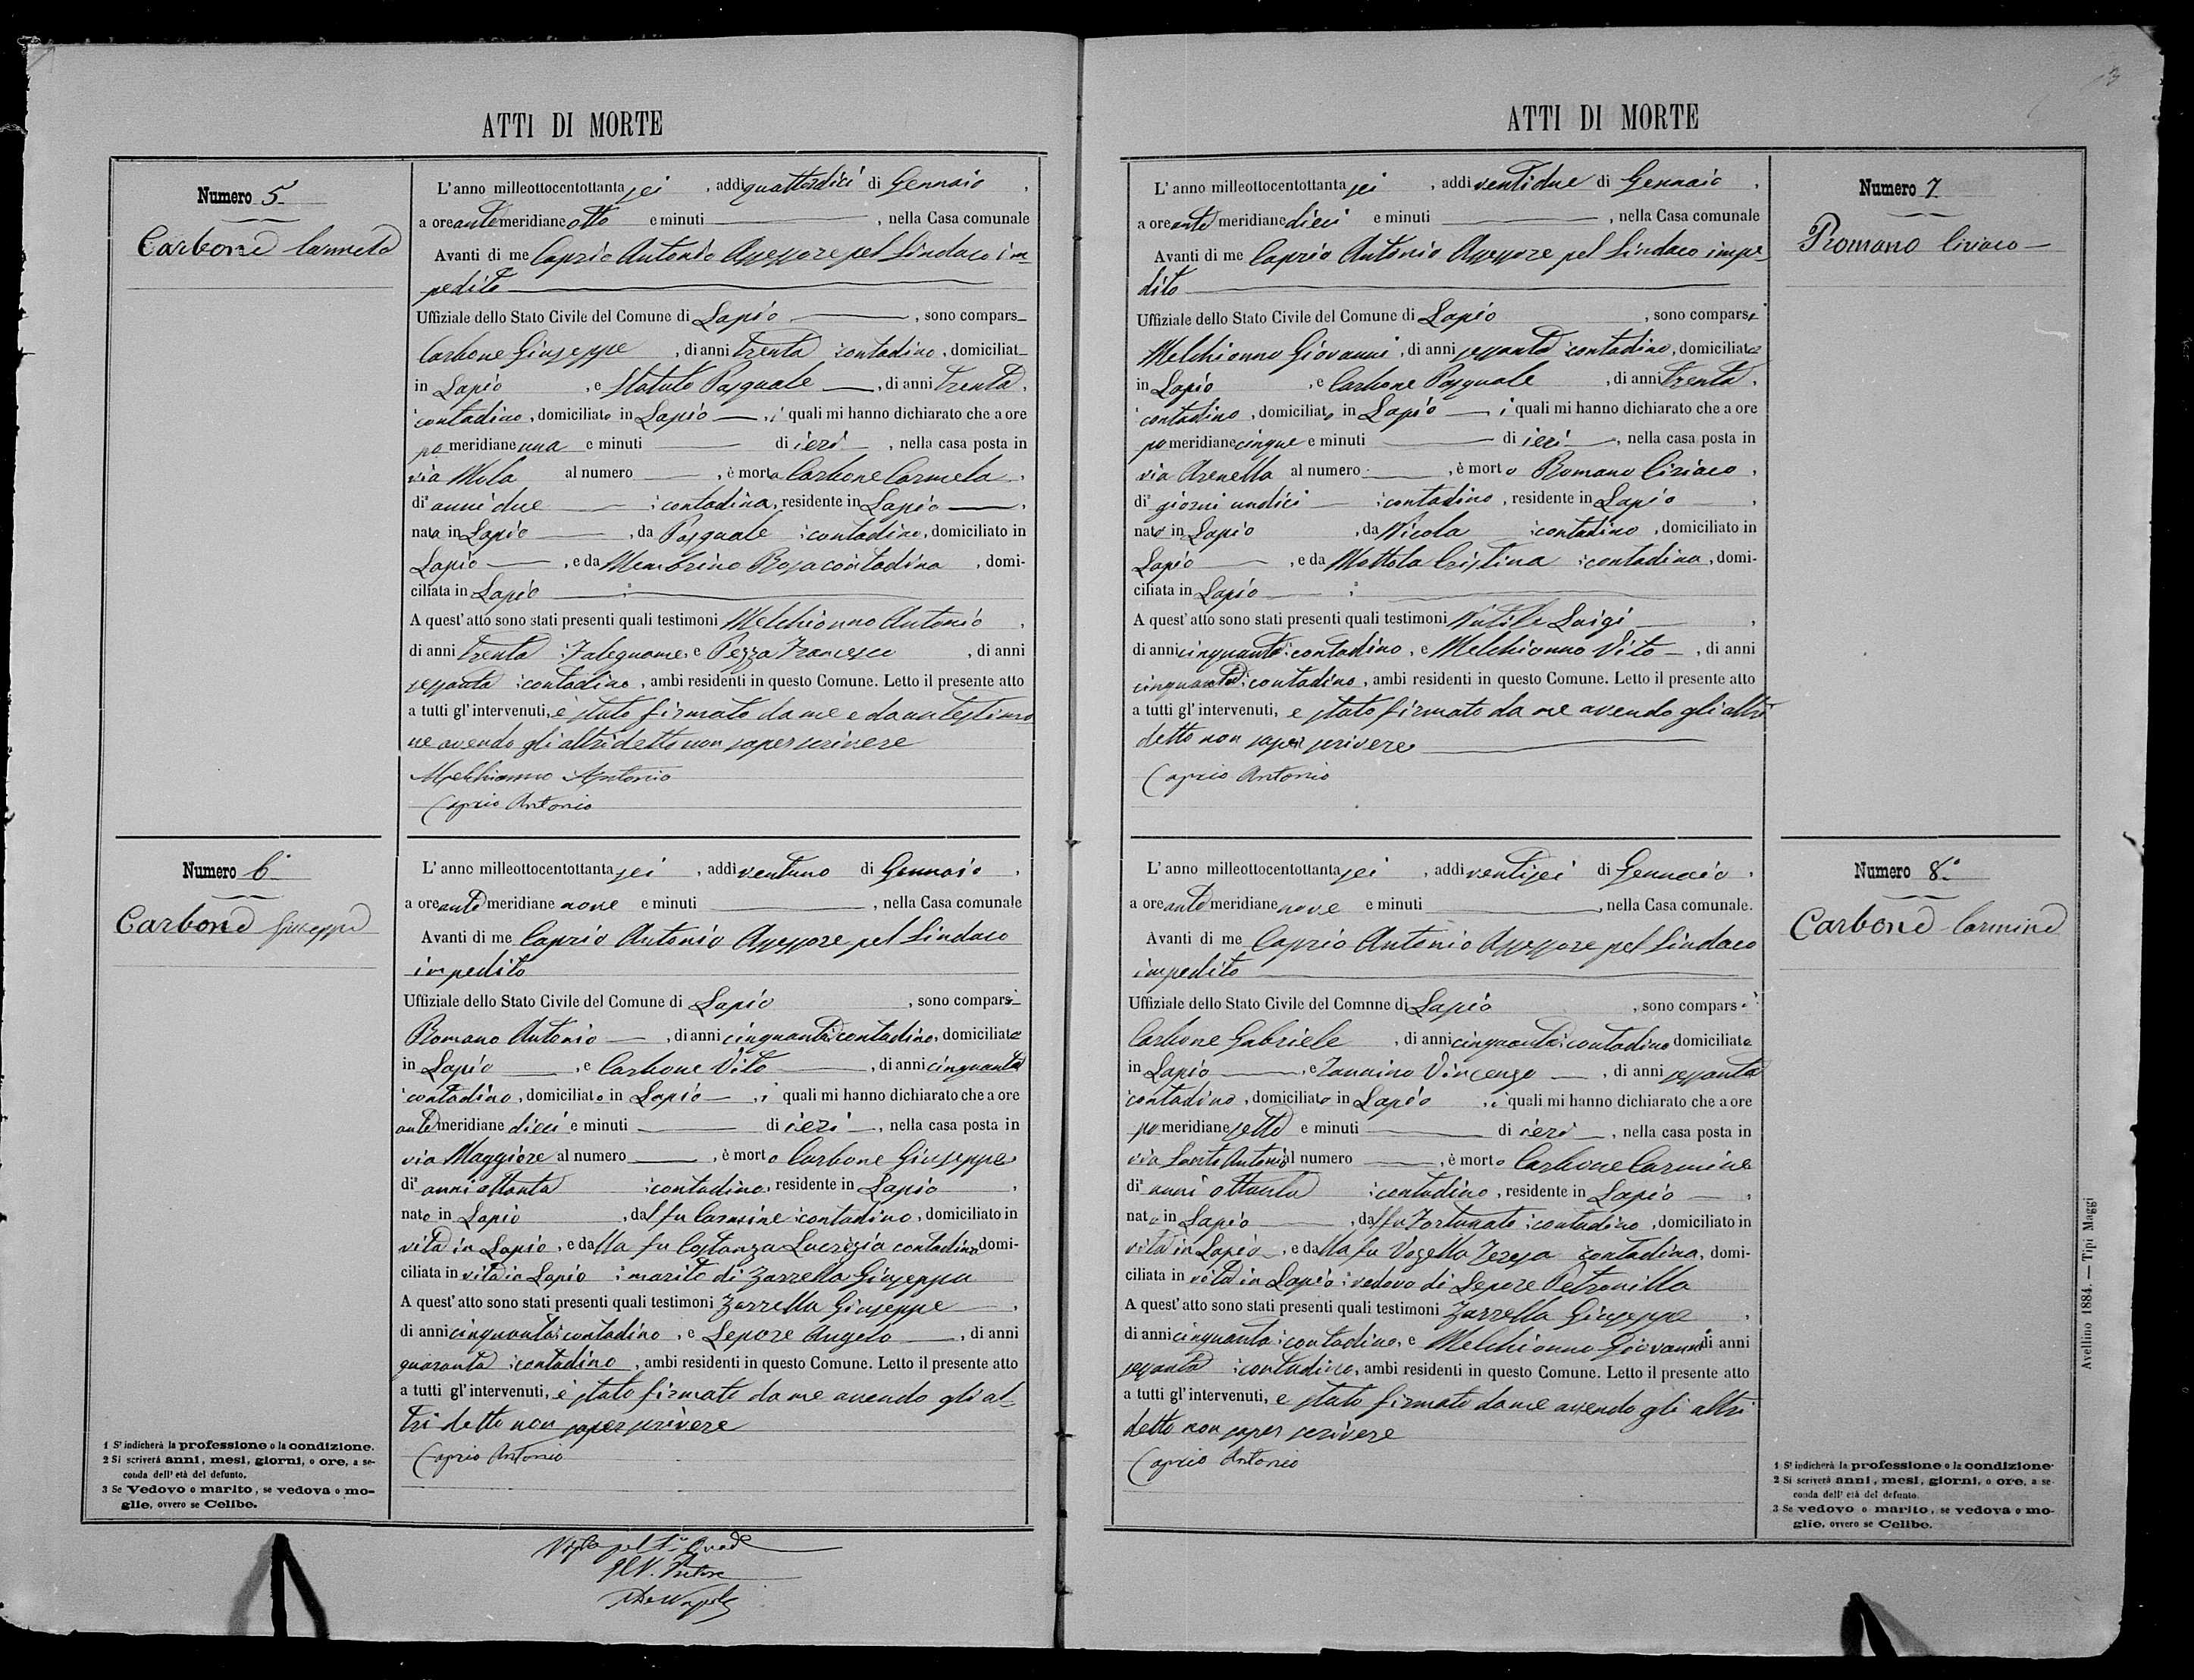 ATTI DI MORTE
Numero 5
Carbone Carmela
L'anno milleottocentottantasei, addi quattordici di Gennaio,
a ore ante meridiane otto e minuti, nella Casa comunale
Avanti di me Caprio Antonio Assessore pel Sindaco im-
pedito
Uffiziale dello Stato Civile del Comune di Lapio, sono compars
Carbone Giuseppe, di anni trenta contadino, domiciliat
in Lapio, e Statuto Pasquale, di anni trenta,
contadino, domiciliato in Lapio, i quali mi hanno dichiarato che a ore
po meridiane una e minuti di ieri, nella casa posta in
via Mola al numero, è morta Carbone Carmela,
di anni due contadina, residente in Lapio,
nata in Lapio, da Pasquale contadino, domiciliato in
Lapio, e da Membrino Rosa contadina, domi-
ciliata in Lapio
A quest'atto sono stati presenti quali testimoni Melchionno Antonio,
di anni trenta Falegname, e Pezza Francesco, di anni
sessanta contadino, ambi residenti in questo Comune. Letto il presente atto
a tutti gl'intervenuti, è stato firmato da me e da un testimo
ne avendo gli altri detto non saper scrivere
Melchionno Antonio
Caprio Antonio
Numero 6
Carbone Giuseppe
L'anno milleottocentottantasei, addi ventuno di Gennaio,
a ore ante meridiane nove e minuti, nella Casa comunale
Avanti di me Caprio Antonio Assessore pel Sindaco
impedito
Uffiziale dello Stato Civile del Comune di Lapio, sono comparsi
Romano Antonio, di anni cinquanta contadino, domiciliato
in Lapio, e Carbone Vito, di anni cinquanta
contadino, domiciliato in Lapio, i quali mi hanno dichiarato che a ore
ante meridiane dieci e minuti di ieri, nella casa posta in
via Maggiore al numero, è morto Carbone Giuseppe
di anni ottanta contadino, residente in Lapio,
nato in Lapio, dal fu Carmine contadino, domiciliato in
vita in Lapio, e dalla fu Costanza Lucrezia contadina domi-
ciliata in vita in Lapio marito di Zarrella Giuseppa
A quest'atto sono stati presenti quali testimoni Zarrella Giuseppe,
di anni cinquanta contadino, e Lepore Angelo, di anni
quaranta contadino, ambi residenti in questo Comune. Letto il presente atto
a tutti gl'intervenuti, è stato firmato da me avendo gli al-
tri detto non saper scrivere
Caprio Antonio
1 S'indicherà la professione o la condizione.
2 Si scriverà anni, mesi, giorni, o ore, a se-
conda dell'età del defunto.
3 Se Vedovo o marito, se vedova o mo-
glie, ovvero se Celibe.
ATTI DI MORTE
Numero 7
Romano Ciriaco
L'anno milleottocentottantasei, addi ventidue di Gennaio,
a ore ante meridiane dieci e minuti, nella Casa comunale
Avanti di me Caprio Antonio Assessore pel Sindaco impe-
dito
Uffiziale dello Stato Civile del Comune di Lapio, sono comparsi
Melchionno Giovanni, di anni sessanta contadino, domiciliato
in Lapio, e Carbone Pasquale, di anni trenta,
contadino, domiciliato in Lapio i quali mi hanno dichiarato che a ore
po meridiane cinque e minuti di ieri, nella casa posta in
via Arenella al numero, è morto Romano Ciriaco,
di giorni undici contadino, residente in Lapio,
nato in Lapio, da Nicola contadino, domiciliato in
Lapio, e da Mottola Cristina contadina, domi-
ciliata in Lapio
A quest'atto sono stati presenti quali testimoni Nutile Luigi,
di anni cinquanta contadino, e Melchionno Vito, di anni
cinquanta contadino, ambi residenti in questo Comune. Letto il presente atto
a tutti gl'intervenuti, è stato firmato da me avendo gli altri
detto non saper scrivere
Caprio Antonio
Numero 8
Carbone Carmine
L'anno milleottocentottantasei, addi ventisei di Gennaio,
a ore ante meridiane nove e minuti, nella Casa comunale.
Avanti di me Caprio Antonio Assessore pel Sindaco
impedito
Uffiziale dello Stato Civile del Comnne di Lapio, sono comparsi
Carbone Gabriele, di anni cinquanta contadino domiciliato
in Lapio, e Iannino Vincenzo, di anni sessanta
contadino, domiciliato in Lapio, i quali mi hanno dichiarato che a ore
po meridiane sette e minuti di ieri, nella casa posta in
via Santo Antonio al numero, è morto Carbone Carmine
di anni ottanta contadino, residente in Lapio,
nato in Lapio, dal fu Fortunato contadino, domiciliato in
vita in Lapio, e dalla fu Vogella Teresa contadina, domi-
ciliata in vita in Lapio vedovo di Lepore Petronilla
A quest'atto sono stati presenti quali testimoni Zarrella Giuseppe,
di anni cinquanta contadino, e Melchionno Giovanni di anni
sessanta contadino, ambi residenti in questo Comune. Letto il presente atto
a tutti gl'intervenuti, è stato firmato da me avendo gli altri
detto non saper scrivere
Caprio Antonio
1 S'indicherà la professione o la condizione.
2 Si scriverà anni, mesi, giorni, o ore, a se-
conda dell'età del defunto.
3 Se vedovo o marito, se vedova o mo-
glie, ovvero se Celibe.
Avellino 1884. — Tipi Maggi